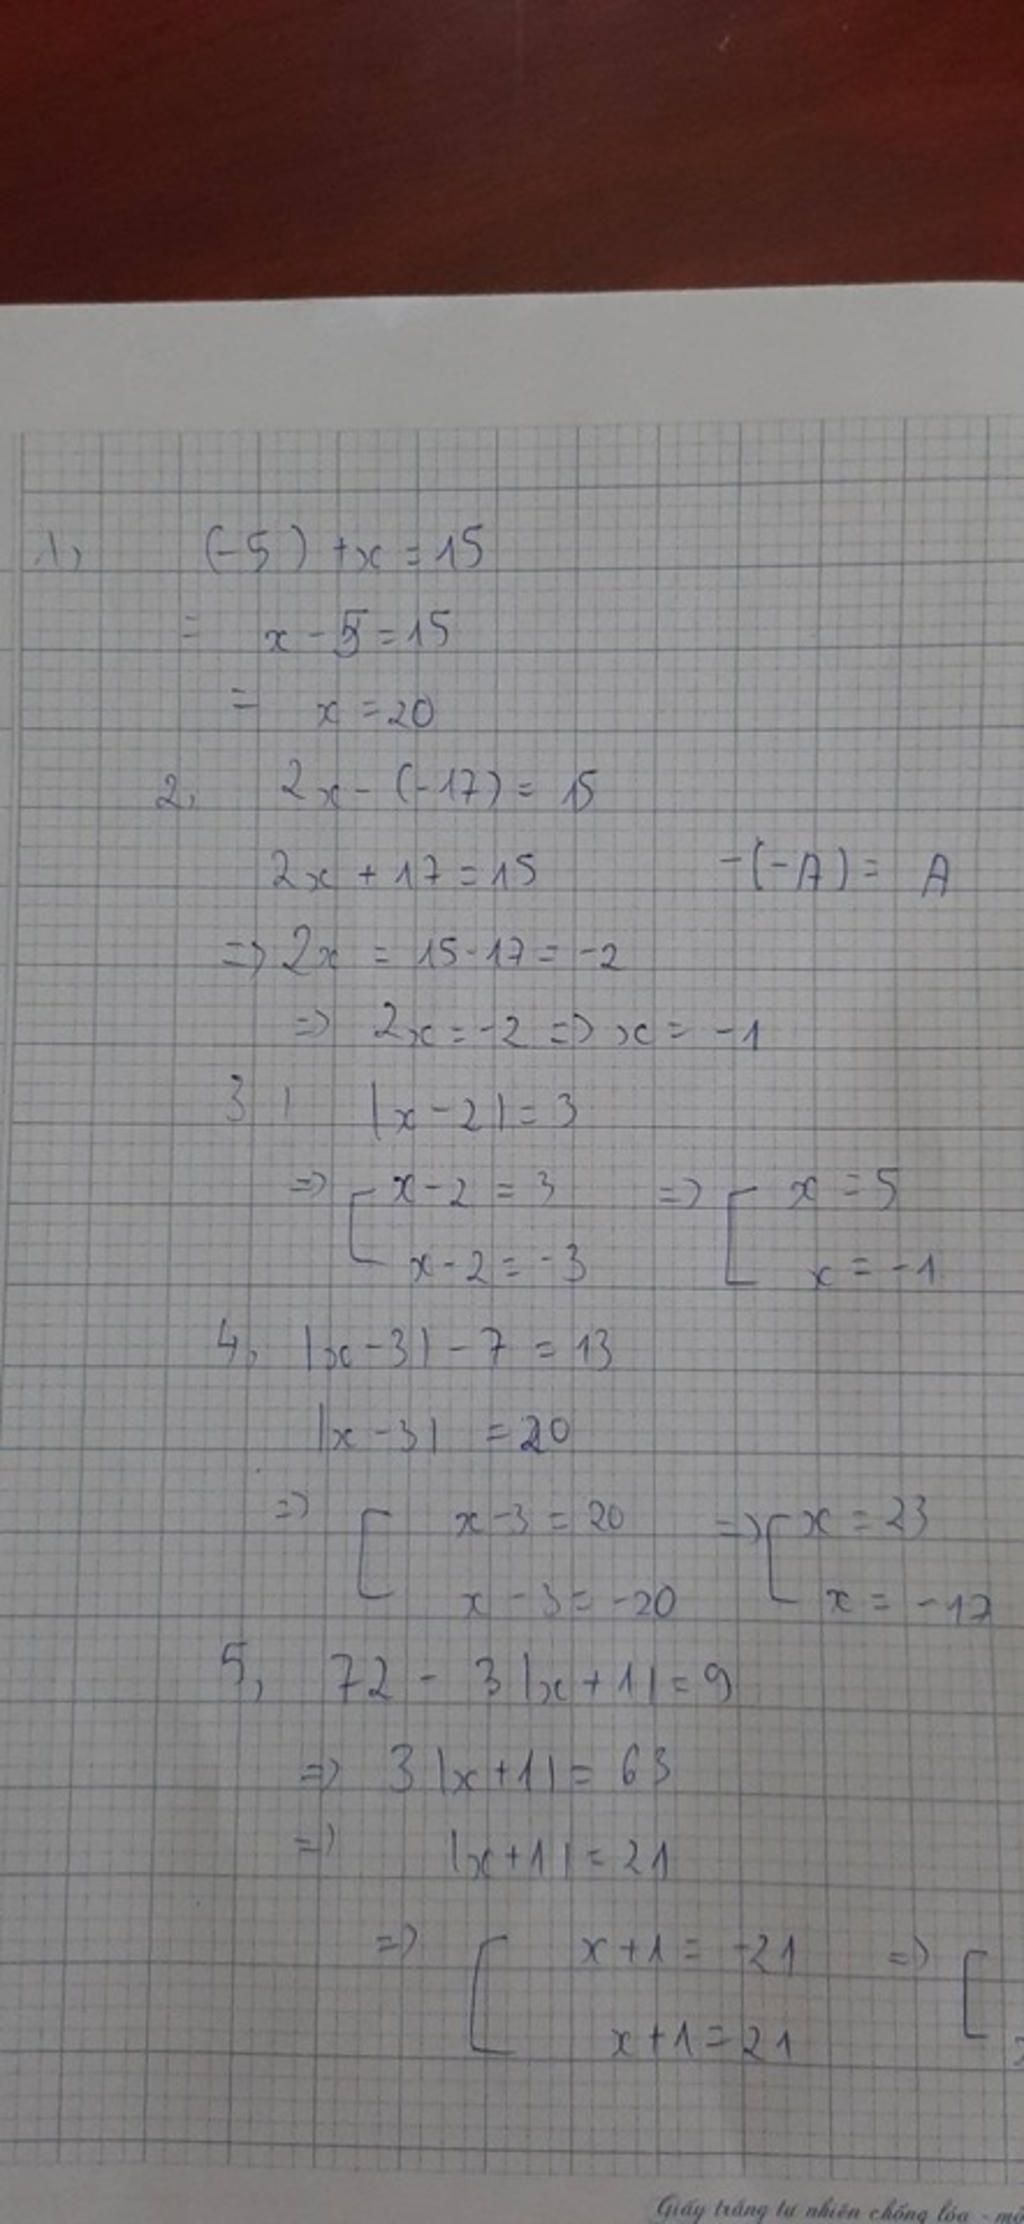 1, (-5) + x = 15
= x - 5 = 15
= x = 20
2, 2x - (-17) = 15
2x + 17 = 15 -(-A) = A
=> 2x = 15 - 17 = -2
=> 2x = -2 => x = -1
3, |x - 2| = 3
=> [ x - 2 = 3 => [ x = 5
x - 2 = -3 x = -1
4, |x - 3| - 7 = 13
|x - 3| = 20
=> [ x - 3 = 20 => [ x = 23
x - 3 = -20 x = -17
5, 72 - 3|x + 1| = 9
=> 3|x + 1| = 63
=> |x + 1| = 21
=> [ x + 1 = -21 => [
x + 1 = 21
Giấy trắng tự nhiên chống lóa -